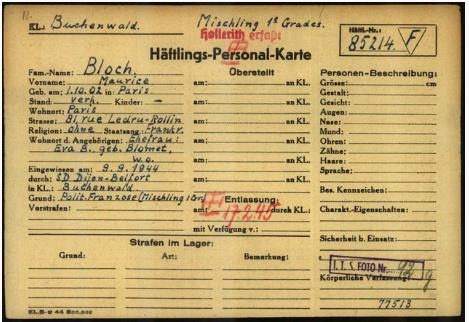 11.
KL.: Buchenwald. Mischling 1ᵉ Grades.
Hollerith erfaßt
Häftl.-Nr.: 85214. F
Häftlings-Personal-Karte
Fam.-Name: Bloch
Vorname: Maurice
Geb. am: 1.10.02 in Paris
Stand: verh. Kinder: —
Wohnort: Paris
Strasse: 81, rue Ledru-Rollin
Religion: ohne Staatsang. Frankr.
Wohnort d. Angehörigen: Ehefrau:
Eva B. geb. Blomet,
w.o.
Eingewiesen am: 9.9.1944
durch: SD Dijon-Belfort
in KL.: Buchenwald.
Grund: Polit. Franzose (Mischling 1
Vorstrafen:
Überstellt
am: an KL.
am: an KL.
am: an KL.
am: an KL.
am: an KL.
am: an KL.
Entlassung:
am: durch KL.:
17.2.45
mit Verfügung v.:
Personen-Beschreibung:
Grösse: cm
Gestalt:
Gesicht:
Augen:
Nase:
Mund:
Ohren:
Zähne:
Haare:
Sprache:
Bes. Kennzeichen:
Charakt.-Eigenschaften:
Sicherheit b. Einsatz:
I.T.S. FOTO Nr.
Körperliche Verfassung:
77513
Strafen im Lager:
Grund: Art: Bemerkung: